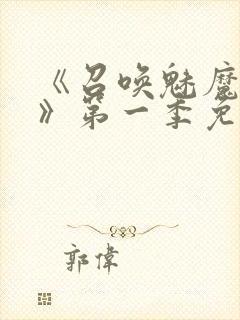 《召唤魅魔
》第一季免
郭偉